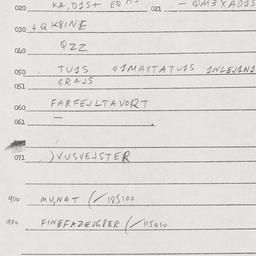 020 KA, DIST EQ 021 - QM3XAD1S
030 + QK8INE
040 QZZ
050 TUIS GIMAXTATUIS INLEJANI
051 GRAJS
060 FARFEJLTAVORT
061 —
071 )VUSVEJSTER
900 MV,NAT (/185100
900 FINEFAZEJGPER (/115010